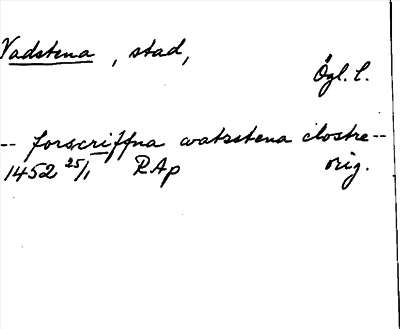 Vadstena, stad,
Ögl. l.
-- forscriffna watzstena clostre --
1452 25/1 RAp orig.